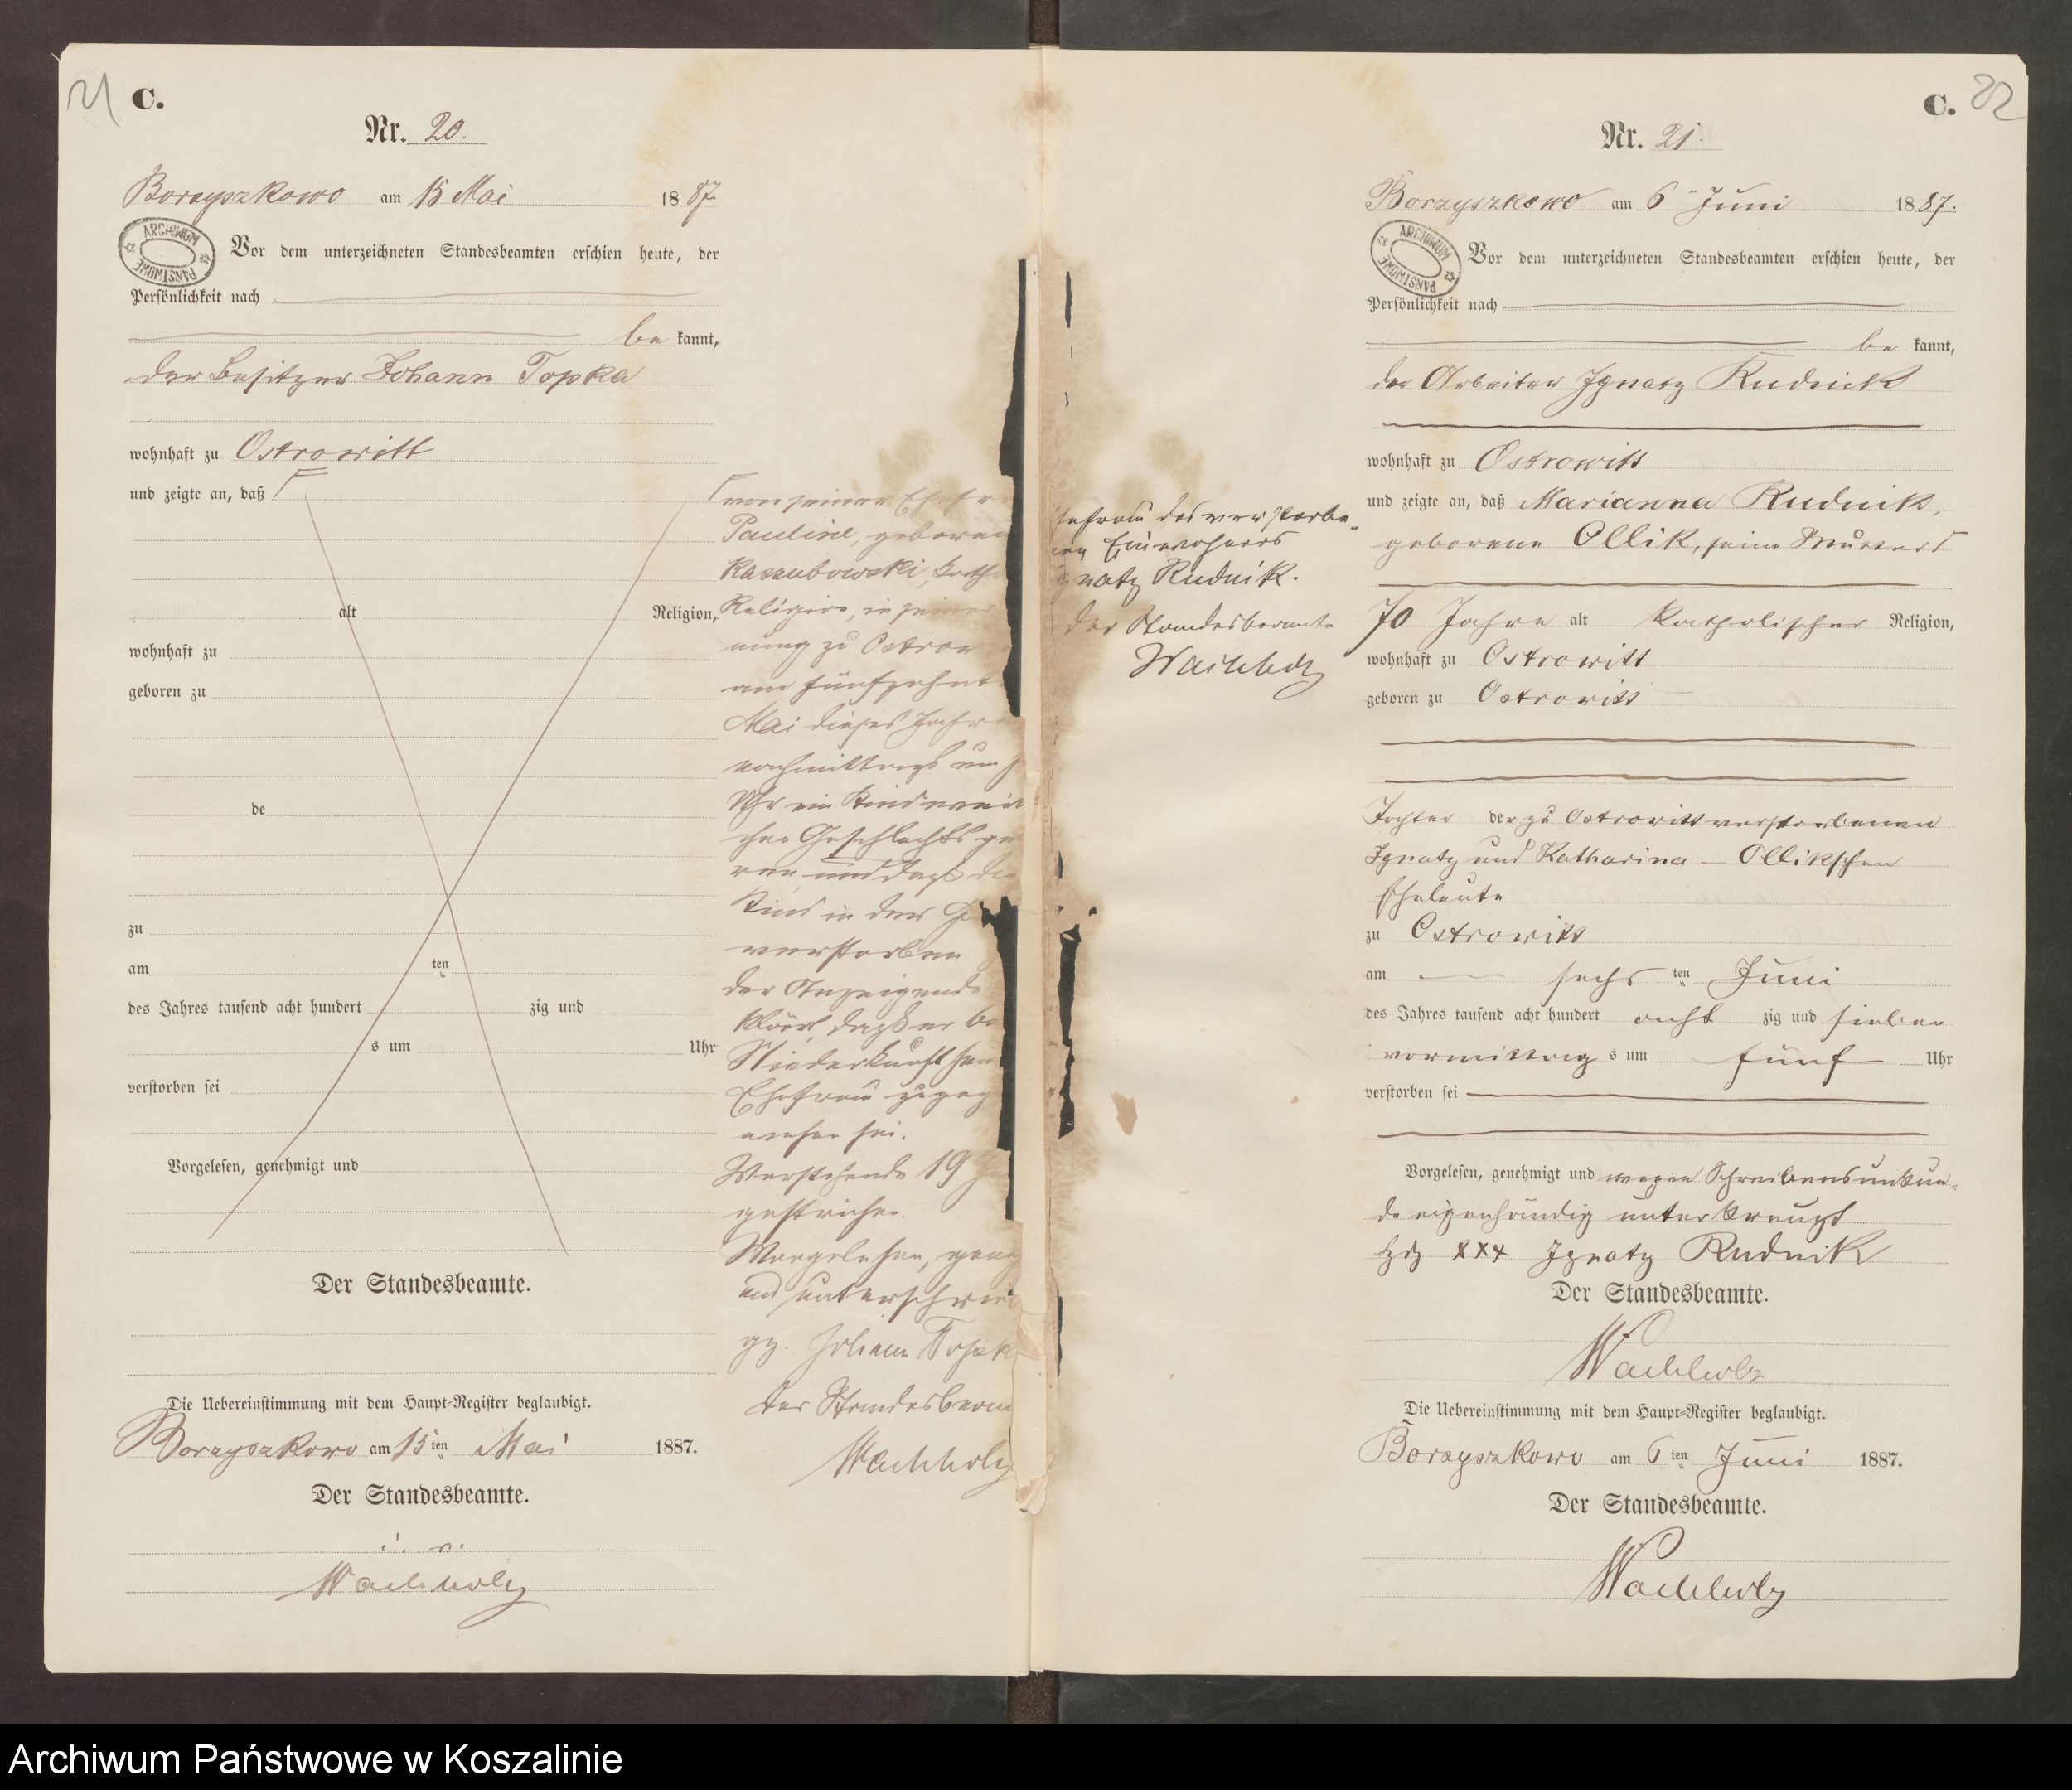 21
C.
Nr. 20.
Borzyszkowo am 15 Mai 1887.
ARCHIWUM PAŃSTWOWE
Vor dem unterzeichneten Standesbeamten erschien heute, der
Persönlichkeit nach
be kannt,
der Besitzer Johann Topka
wohnhaft zu Ostrowitt
und zeigte an, daß
alt Religion,
wohnhaft zu
geboren zu
de
zu
am ten
des Jahres tausend acht hundert zig und
s um Uhr
verstorben sei
Vorgelesen, genehmigt und
Der Standesbeamte.
Die Uebereinstimmung mit dem Haupt-Register beglaubigt.
Borzyszkowo am 15ten Mai 1887.
Der Standesbeamte.
Wachholz
von seiner Ehefr
Pauline, geboren
Kaszubowski, kath
Religion, in seiner
nung zu Ostrow
am fünfzehnt
Mai dieses Jahre
nachmittags um
Uhr ein Kind weib
chen Geschlechts ge
ren und daß da
Kind in der Ge
verstorben
der Anzeigende
klärt, daß er be
Niederkunft sei
Ehefrau zugeg
wesen sei.
Vorstehende 19
gestrichen
Vorgelesen, gene
und unterschrie
gz. Johann Topk
der Standesbeam
Wachholz
82
C.
Nr. 21.
Borzyszkowo am 6 Juni 1887.
ARCHIWUM PAŃSTWOWE
Vor dem unterzeichneten Standesbeamten erschien heute, der
Persönlichkeit nach
be kannt,
der Arbeiter Ignatz Rudnick
wohnhaft zu Ostrowitt
und zeigte an, daß Marianna Rudnik,
geborene Ollik, seine Mutter
70 Jahre alt katholischer Religion,
wohnhaft zu Ostrowitt
geboren zu Ostrowitt
Tochter der zu Ostrowitt verstorbenen
Ignatz und Katharina - Ollikschen
Eheleute
zu Ostrowitt
am sechs ten Juni
des Jahres tausend acht hundert acht zig und sieben
vormittag s um fünf Uhr
verstorben sei
Vorgelesen, genehmigt und wegen Schreibensunkun-
de eigenhändig unterkreuzt
hdz xxx Ignatz Rudnik
Der Standesbeamte.
Wachholz
Die Uebereinstimmung mit dem Haupt-Register beglaubigt.
Borzyszkowo am 6ten Juni 1887.
Der Standesbeamte.
Wachholz
hefrau des verstorbe-
nen Einwohners
gnatz Rudnik.
Der Standesbeamte
Wachholz
Archiwum Państwowe w Koszalinie